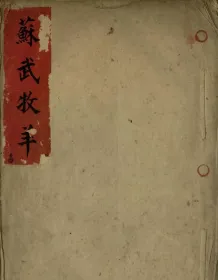 蘇武牧羊